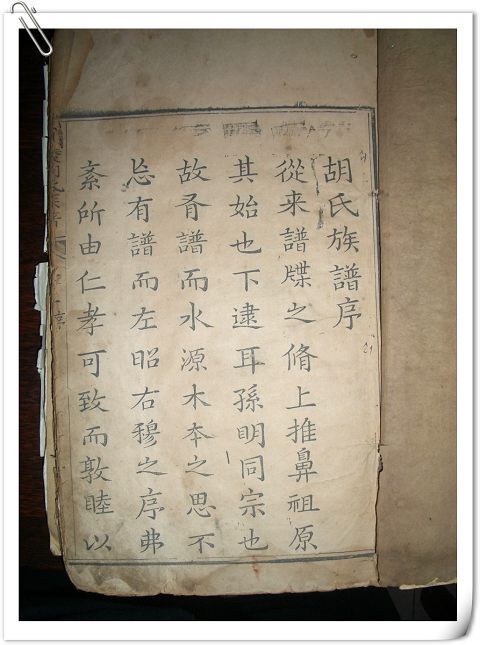 胡氏族譜序
從来譜牒之脩上推鼻祖原
其始也下逮耳孫明同宗也
故脀譜而水源木夲之思不
忘有譜而左昭右穆之序弗
紊所由仁孝可致而敦睦以